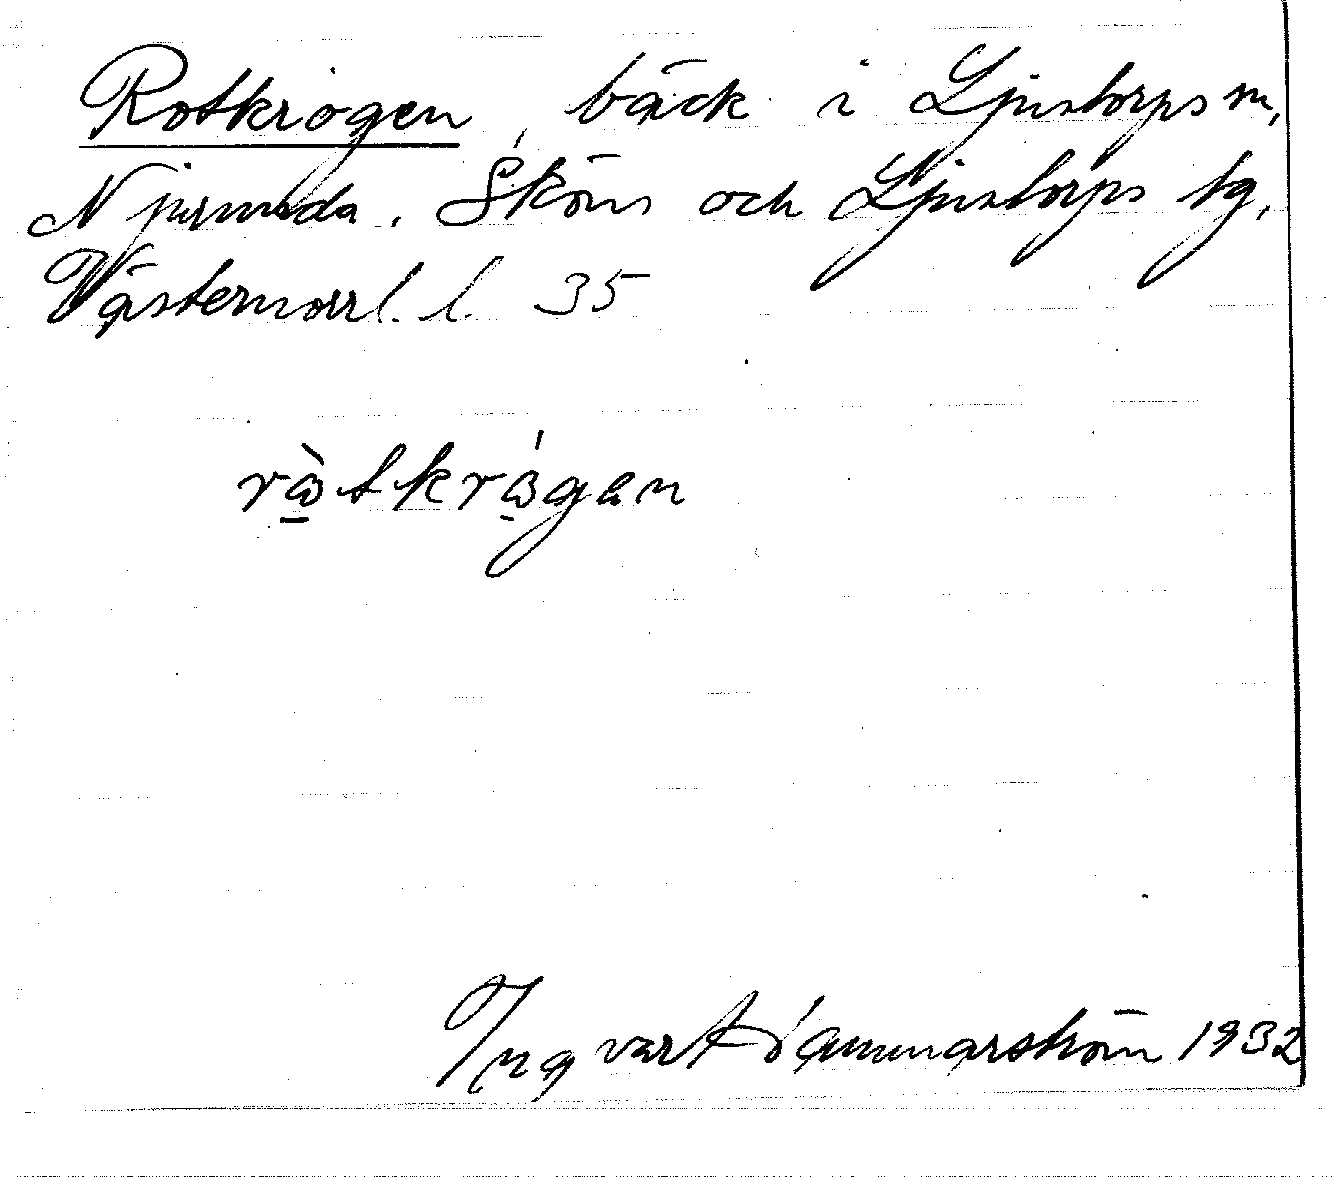 Rotkrogen, bäck i Ljustorps sn,
Njurunda, Sköns och Ljustorps tg,
Västernorrl. l. 35
Ingvar Hammarström 1932